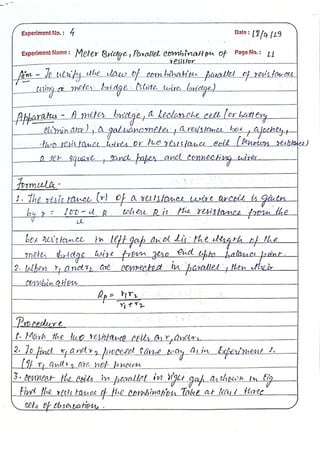 Experiment No. : 4
Date : 18/7/19
Experiment Name : Meter Bridge, Parallel combination of Page No. : 11
resistor
Aim - To verify the law of combination parallel of resistances
using a meter bridge (slide wire bridge)
Apparatus - A meter bridge, a Leclanche cell (or battery
Eliminator), a galvanometer, a resistance box, a jockey,
two resistance wires or two resistance coil (known resistance)
a set square, sand paper and connecting wire
Formula -
1. The resistance (r) of a resistance wire or coil is given
by r = 100-l R where R is the resistance from the
l
box resistance in left gap and l is the length of the
meter bridge wire from zero end upto balance point.
2. When r1 and r2 are connected in parallel, then their
combination
Rp = r1r2
r1+r2
Procedure
1. Mark the two resistance coils as r1 and r2.
2. To find r1 and r2 proceed same way as in Experiment 1.
(if r1 and r2 are not known
3. Connect the coils in parallel in right gap as shown in fig
Find the resistance of the combination Take at least three
sets of observations.